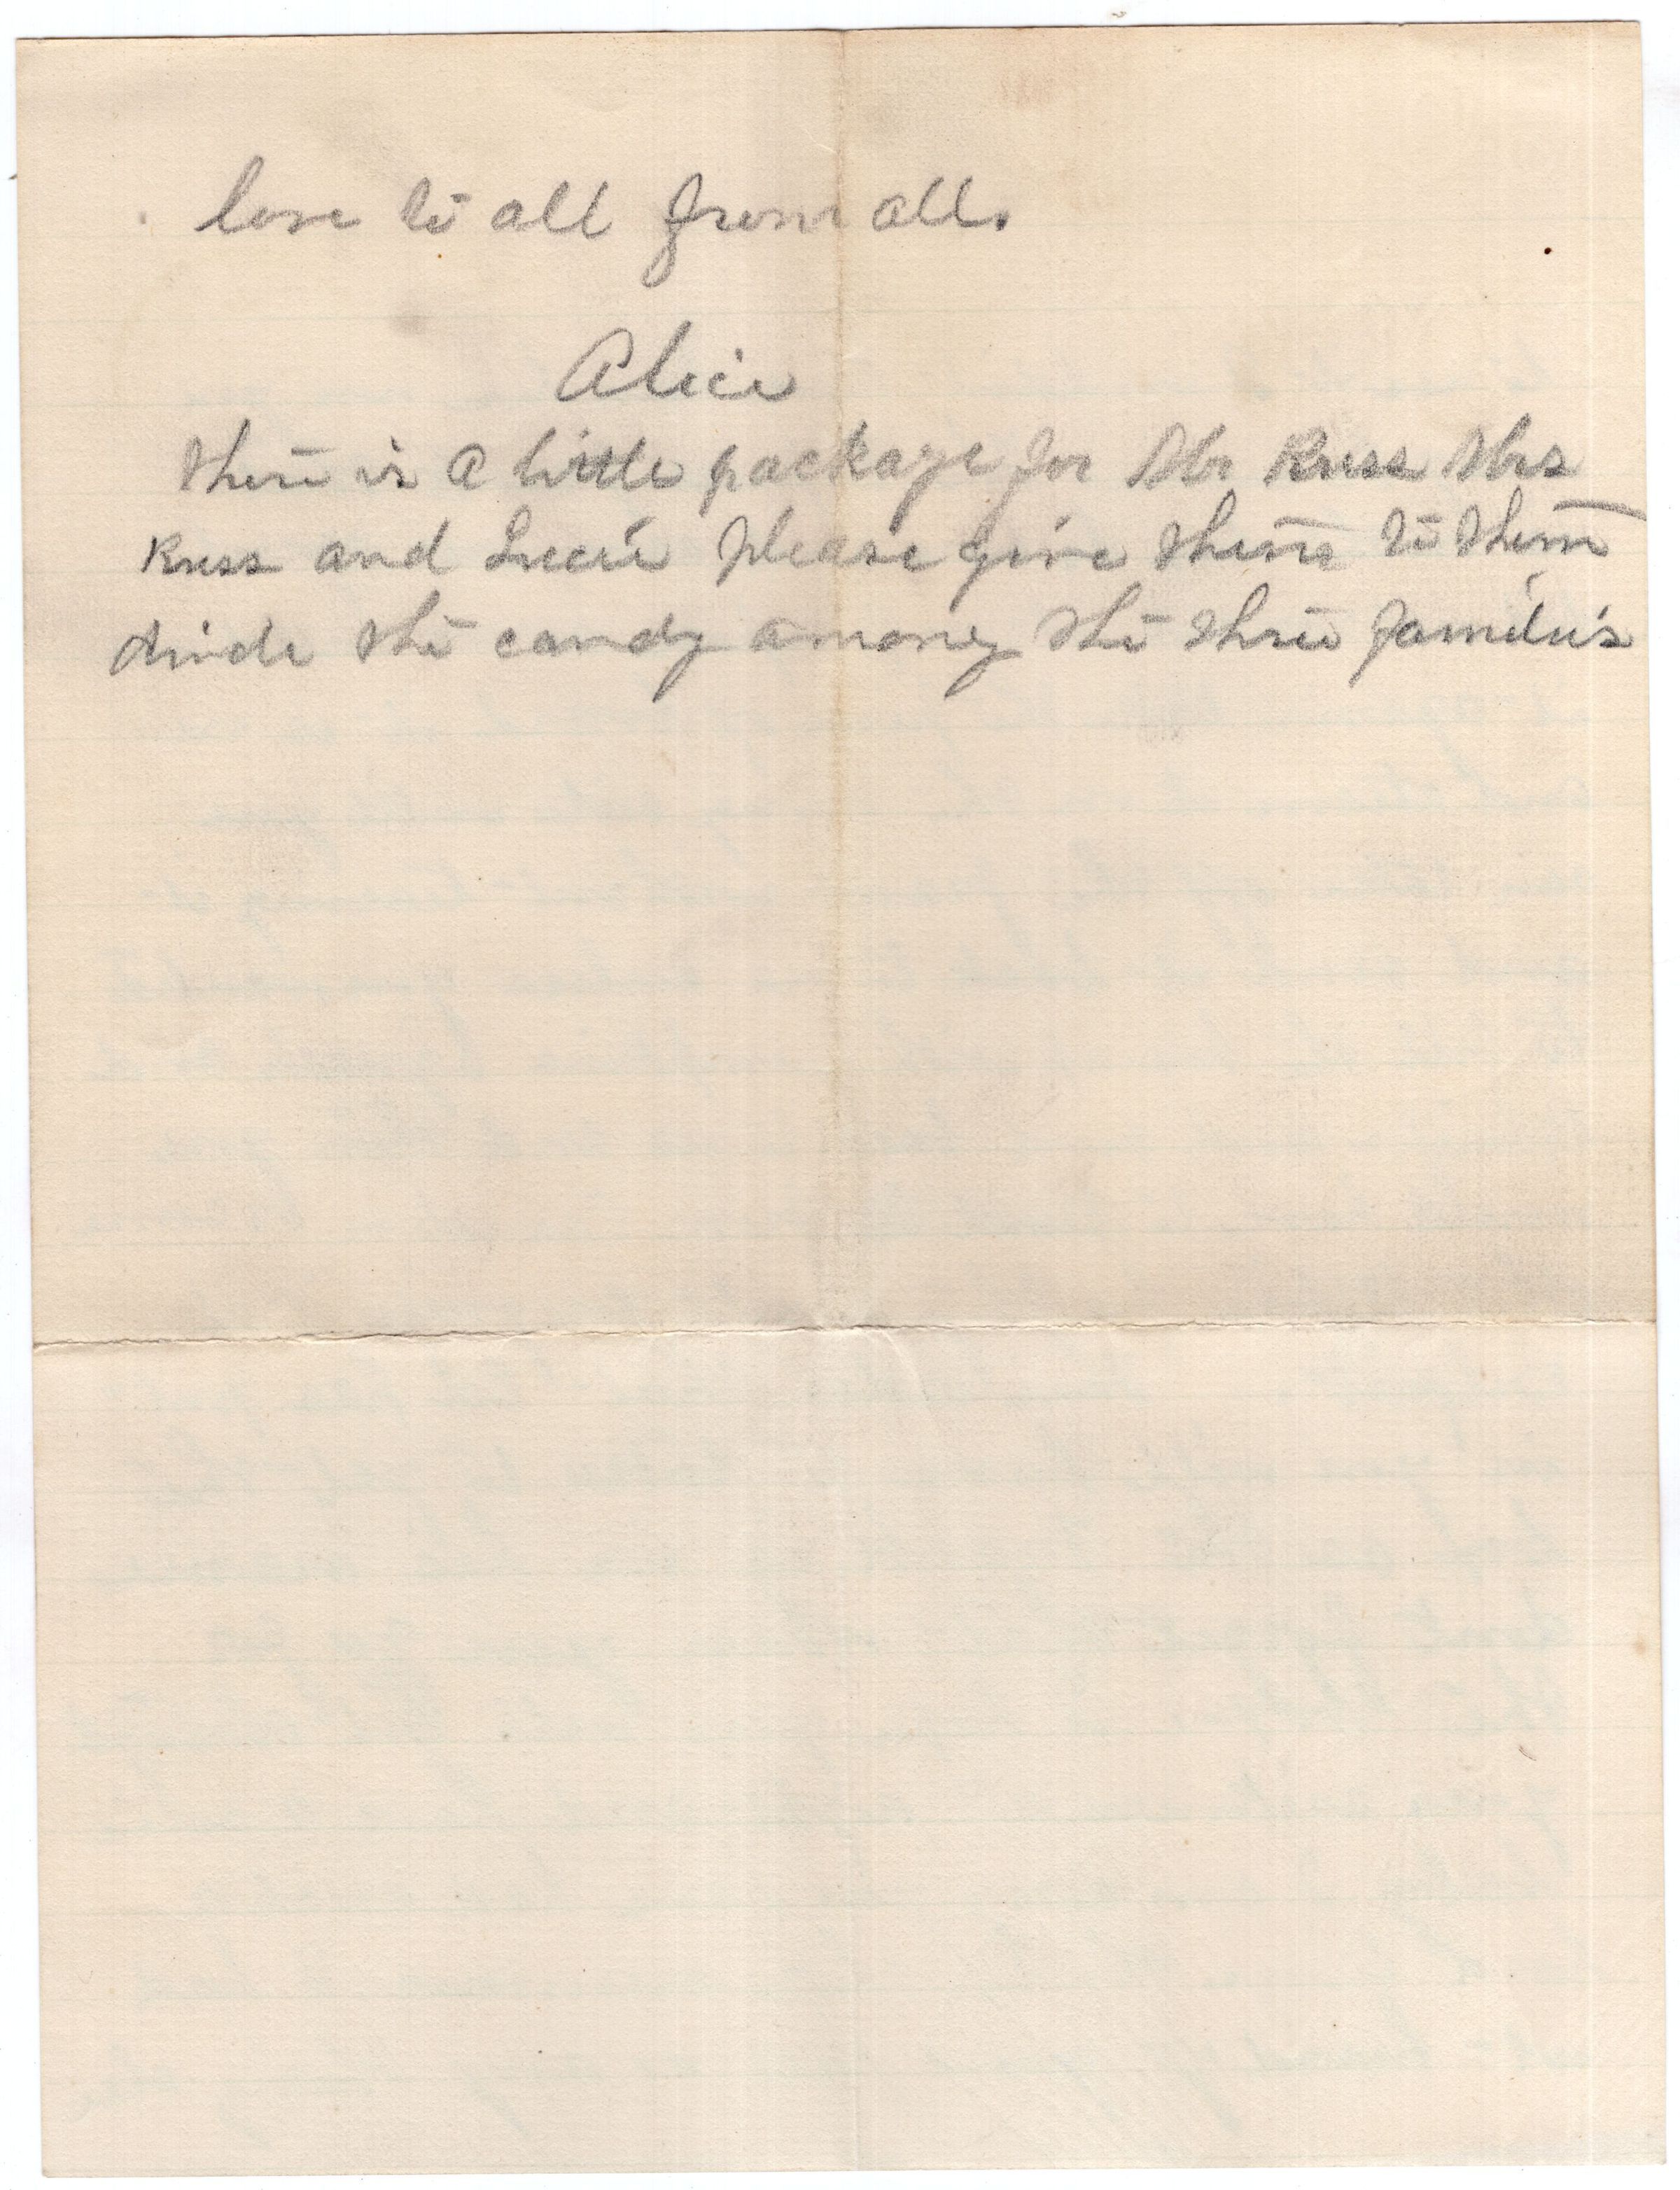 love to all from all.
Alice
there is a little package for Mr Russ Mrs
Russ and Lucie Please give them to them
divide the candy among the three families